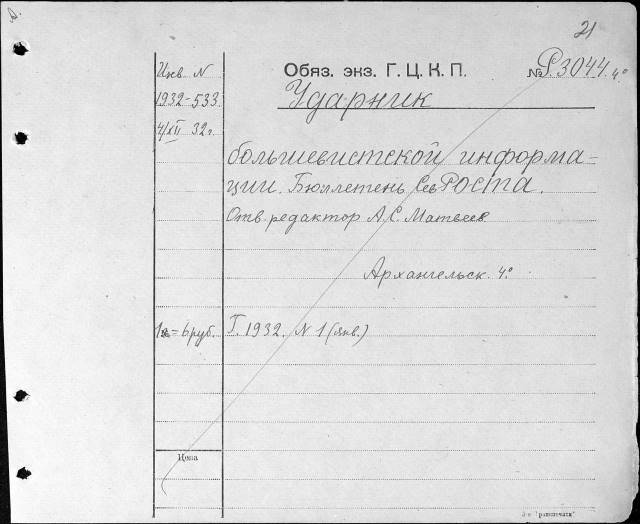 21
Инв N
1932-533
4/XII 32г.
Обяз. экз. Г. Ц. К. П.
№ Р3044. 4°
Ударник
большевистской информа=
ции. Бюллетень СевРоста.
Отв. редактор А. С. Матвеев.
Архангельск. 4°
= 6 руб.
Г. 1932. N 1 (янв.)
Цена